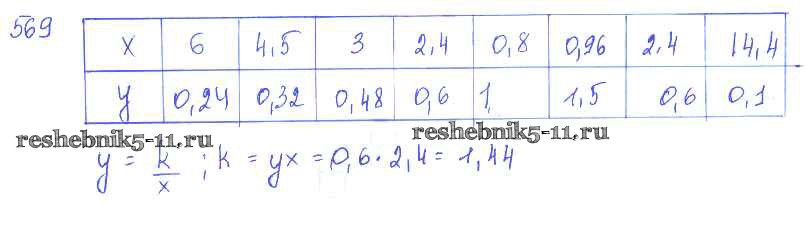 569
x 6 4,5 3 2,4 0,8 0,96 2,4 14,4
y 0,24 0,32 0,48 0,6 1 1,5 0,6 0,1
reshebnik5-11.ru reshebnik5-11.ru
y = k/x ; k = yx = 0,6 · 2,4 = 1,44